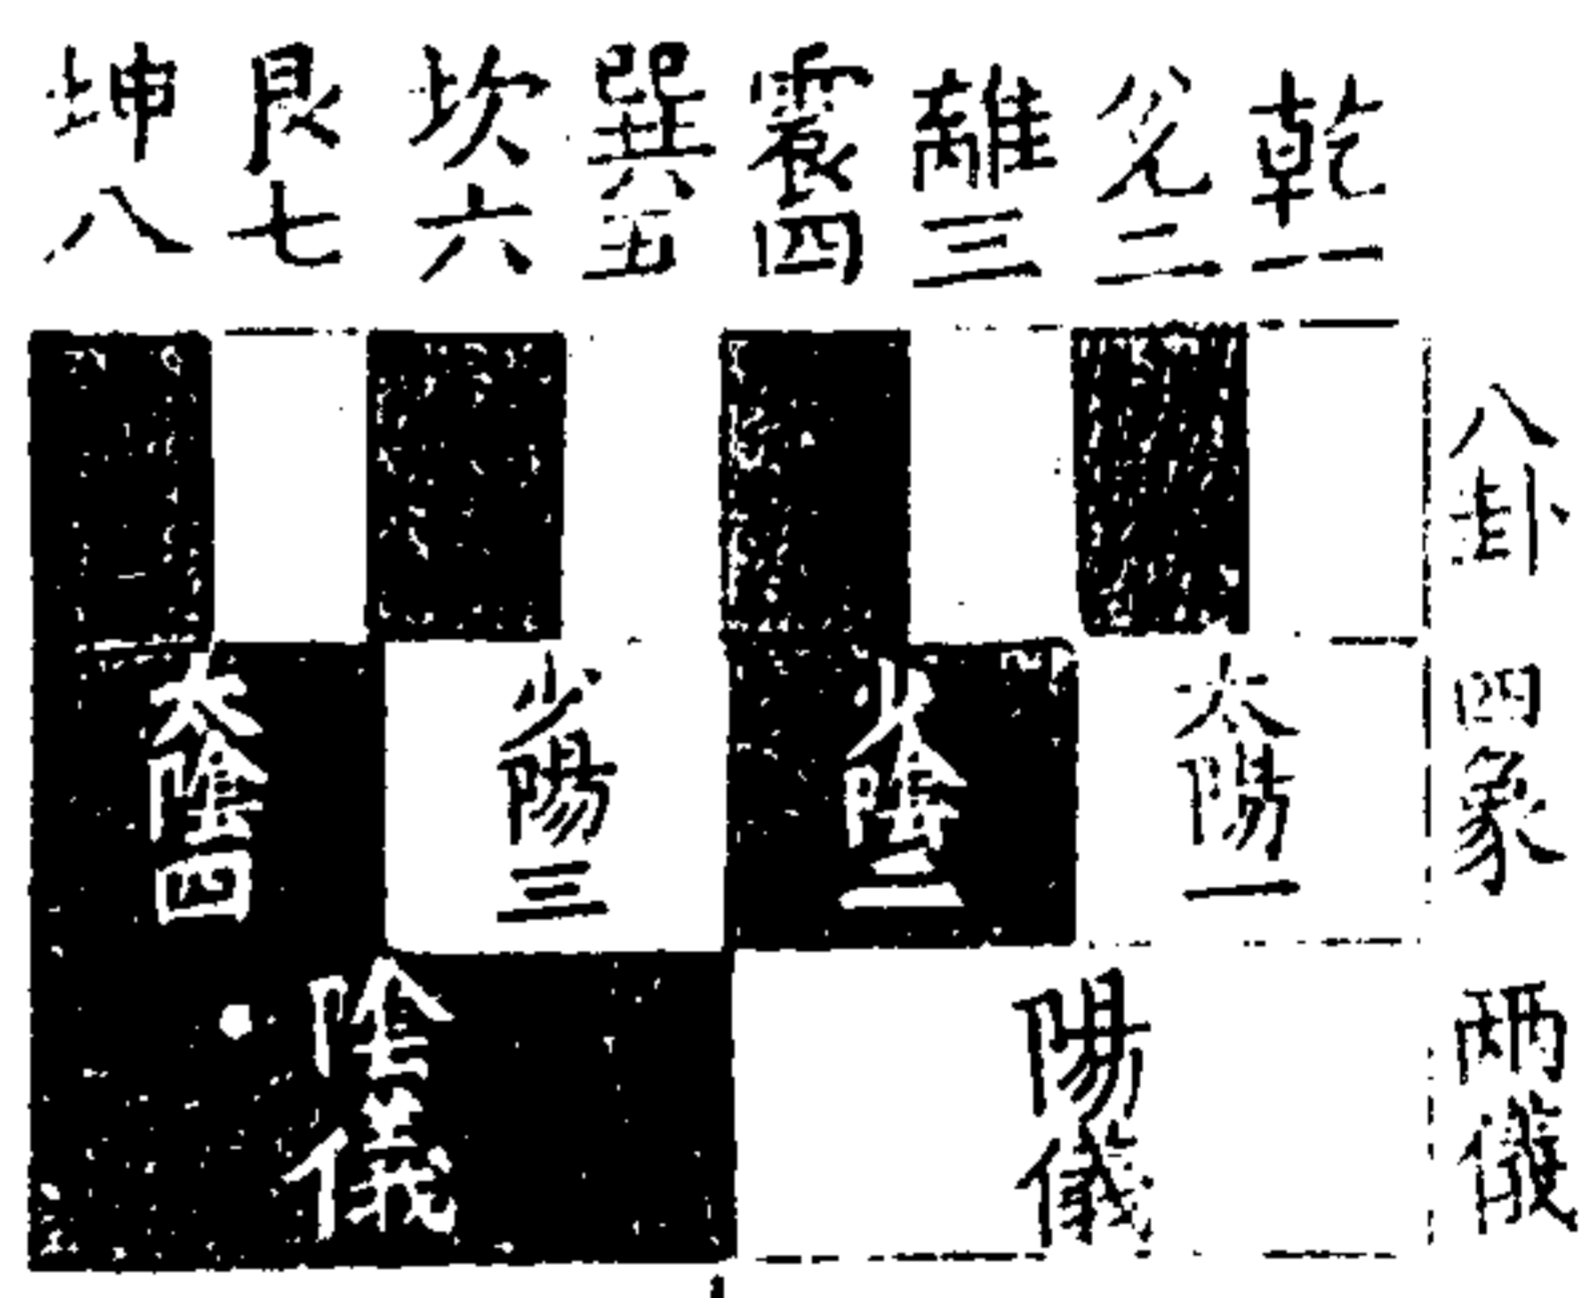 乾一
兌二
離三
震四
巽五
坎六
艮七
坤八
八卦
四象
兩儀
太陽一
少陰二
少陽三
太陰四
陽儀
陰儀